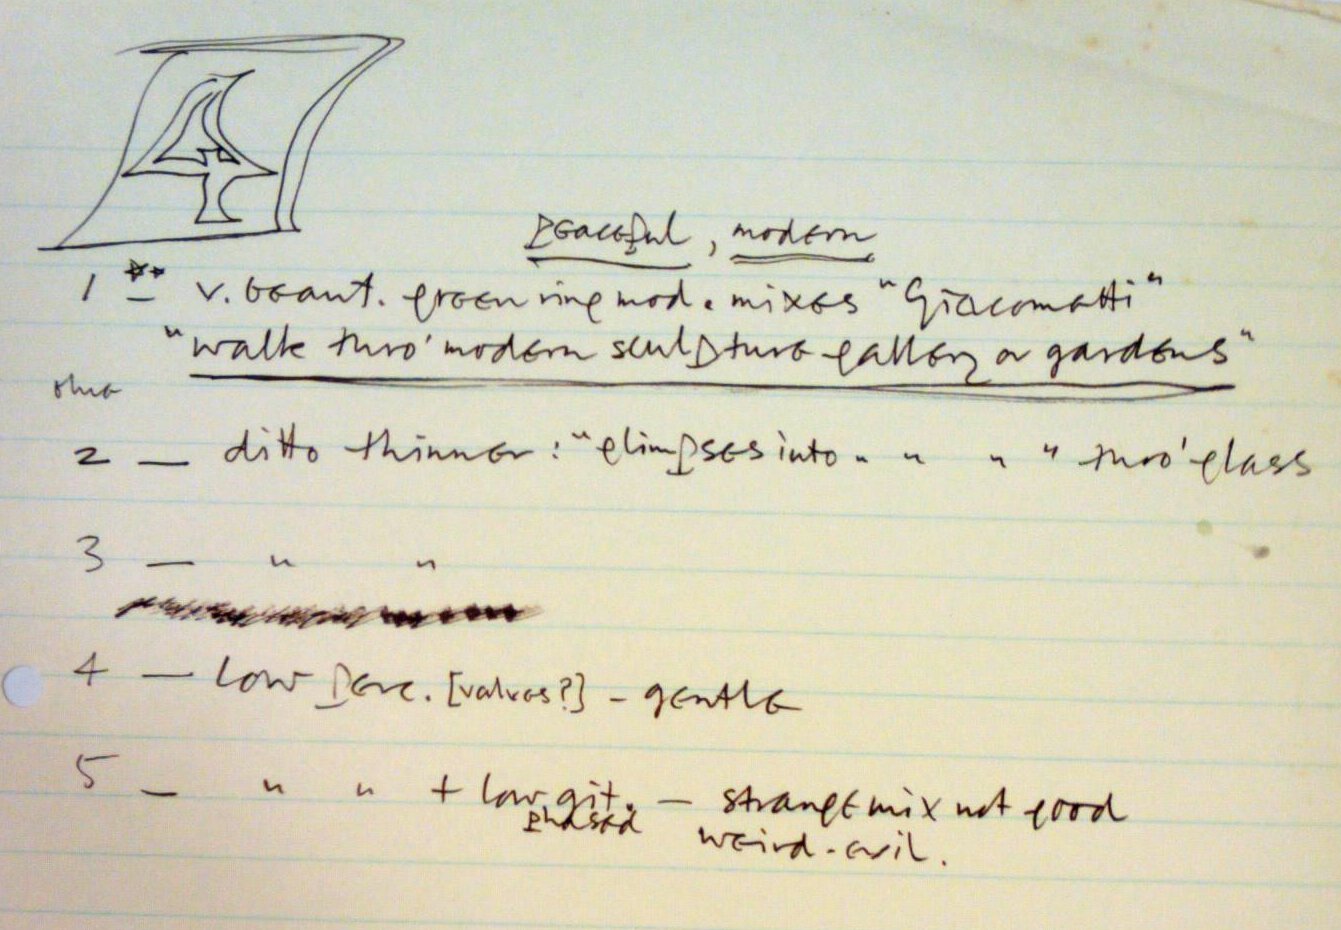 4
Peaceful, modern
1 ** v. beaut. green ring mod. mixes "Giacomatti"
"walk thro' modern sculpture gallery or gardens"
2 — ditto thinner: "glimpses into " " " " thro' glass
3 — " "
4 — Low perc. [valves?] - gentle
5 — " " + low git. — strange mix not good
phased weird-evil.